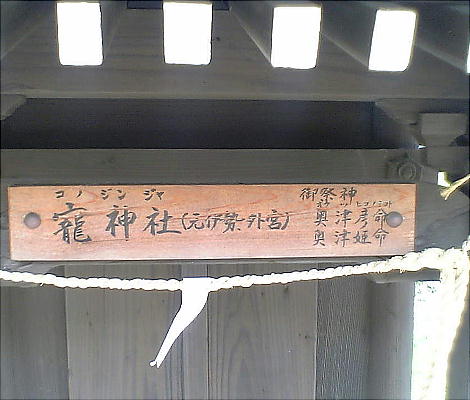 コノジンジャ
寵神社(元伊勢・外宮)
御祭神
オクツヒコノミコト
奥津彦命
奥津姫命